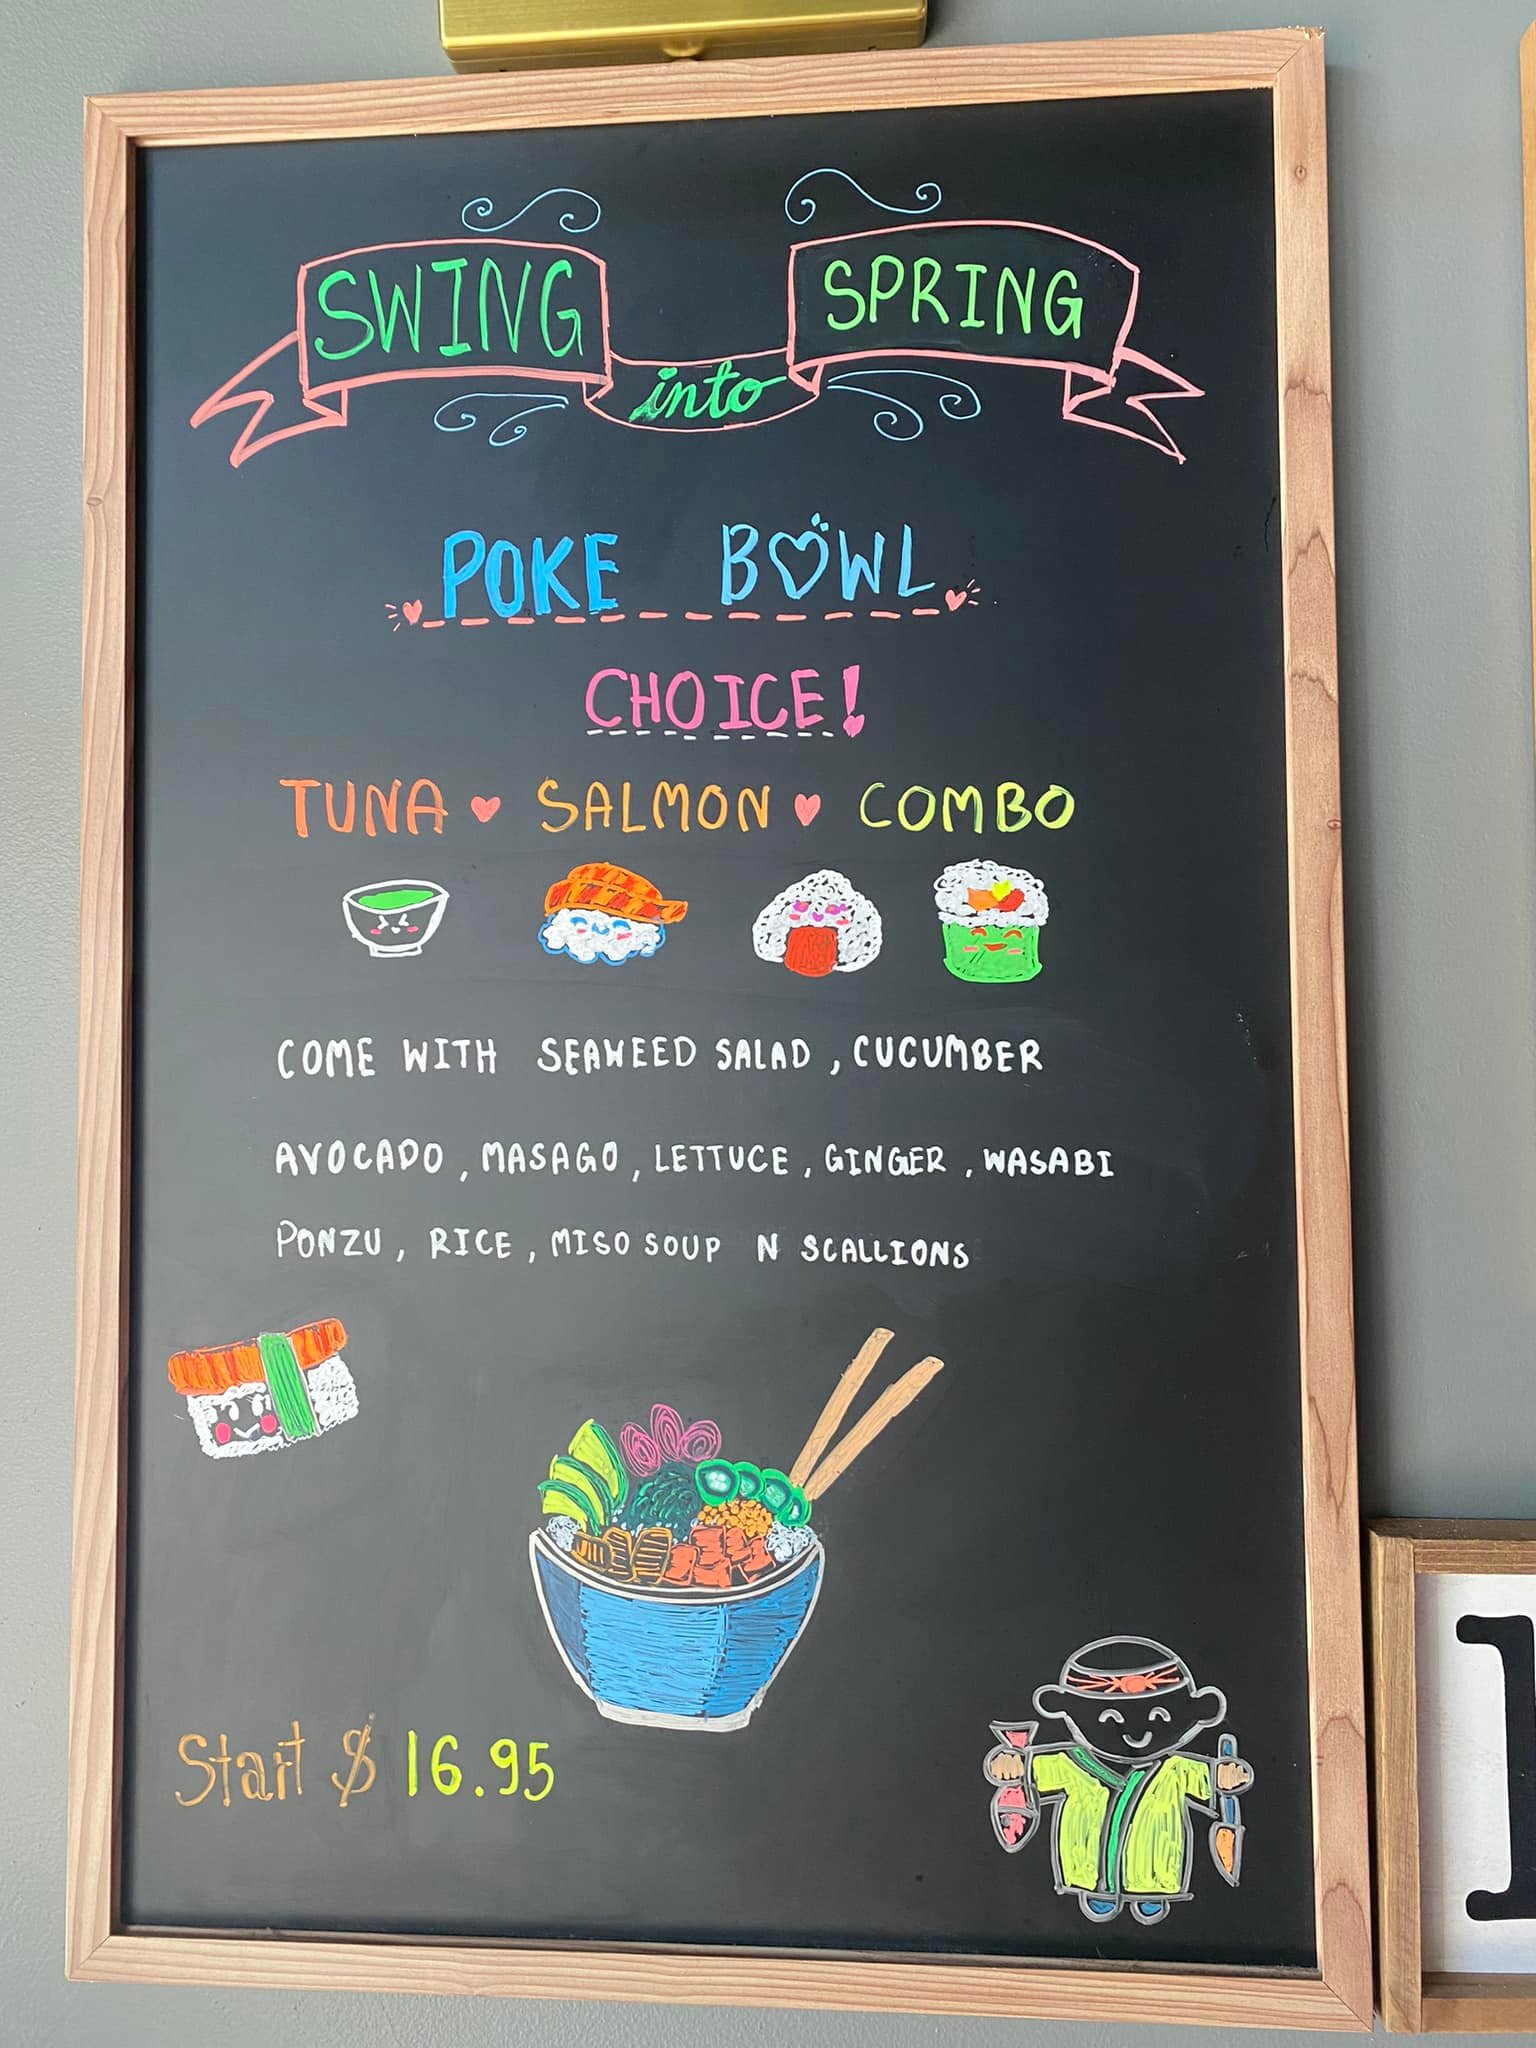 SWING into SPRING
POKE BOWL
CHOICE!
TUNA ♥ SALMON ♥ COMBO
COME WITH SEAWEED SALAD, CUCUMBER
AVOCADO, MASAGO, LETTUCE, GINGER, WASABI
PONZU, RICE, MISO SOUP N SCALLIONS
Start $ 16.95